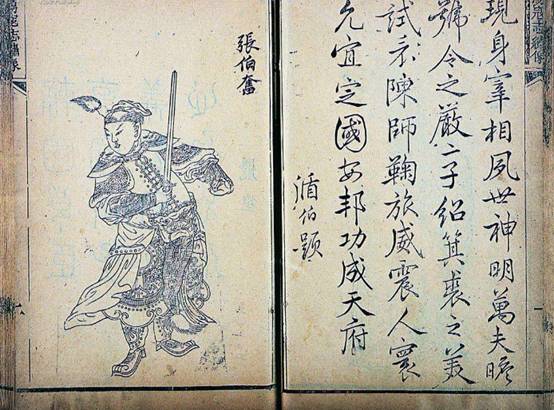 現身宰相夙世神明萬夫瞻
號令之嚴二子紹箕裘之美
試看陳師鞠旅威震人寰
允宜定國安邦功成天府
循伯題
張伯奮